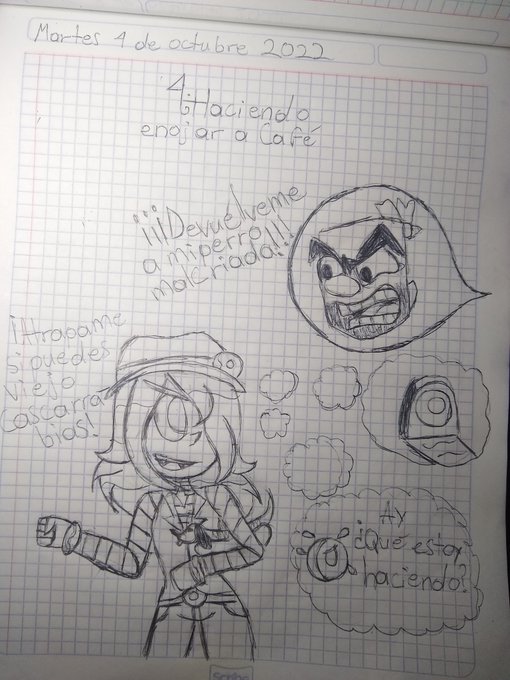 Martes 4 de octubre 2022
4: Haciendo
enojar a Café
¡¡¡Devuélveme
a mi perro
malcriada!!!
¡Atrapame
si puedes
viejo
cascarra
bias!
Ay
¿Qué estoy
haciendo?